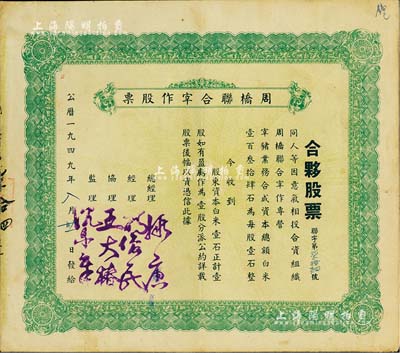 上海陽明拍賣
周橋聯合宰作股票
合夥股票
聯字第 號
同人等因意氣相投合資組織
周橋聯合宰作專營
宰豬業務合成資本總額白米
壹百叁拾肆石為每股壹石整
今收到
股東資本白米壹石正計壹
股如有盈虧作為壹股分派公約詳載
股票後幅以資憑信此據
總經理
經理
協理
監理
公曆一九四九年八月 日發給
上海陽明拍賣
上海陽明拍賣